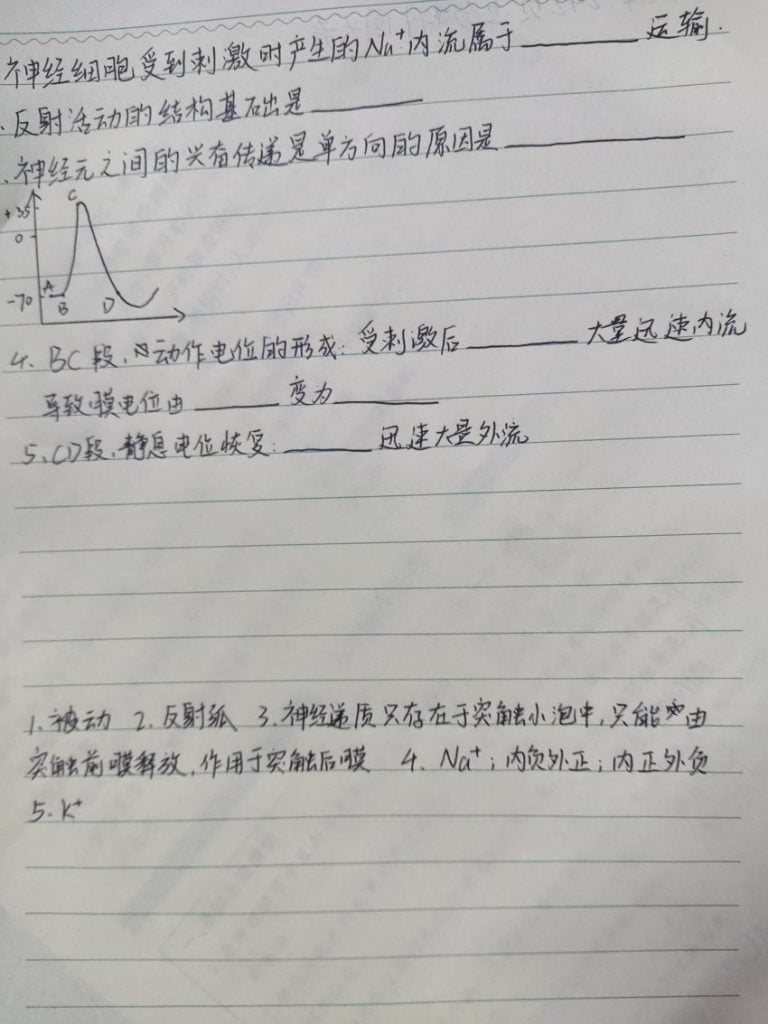 神经细胞受到刺激时产生的Na⁺内流属于______运输.
、反射活动的结构基础是______
、神经元之间的兴奋传递是单方向的原因是______
C
+35
0
-70
A
B
D
4. BC段、动作电位的形成：受刺激后______大量迅速内流
导致膜电位由______变为______
5、CD段、静息电位恢复：______迅速大量外流
1、被动 2、反射弧 3、神经递质只存在于突触小泡中，只能由
突触前膜释放，作用于突触后膜 4、Na⁺；内负外正；内正外负
5、K⁺